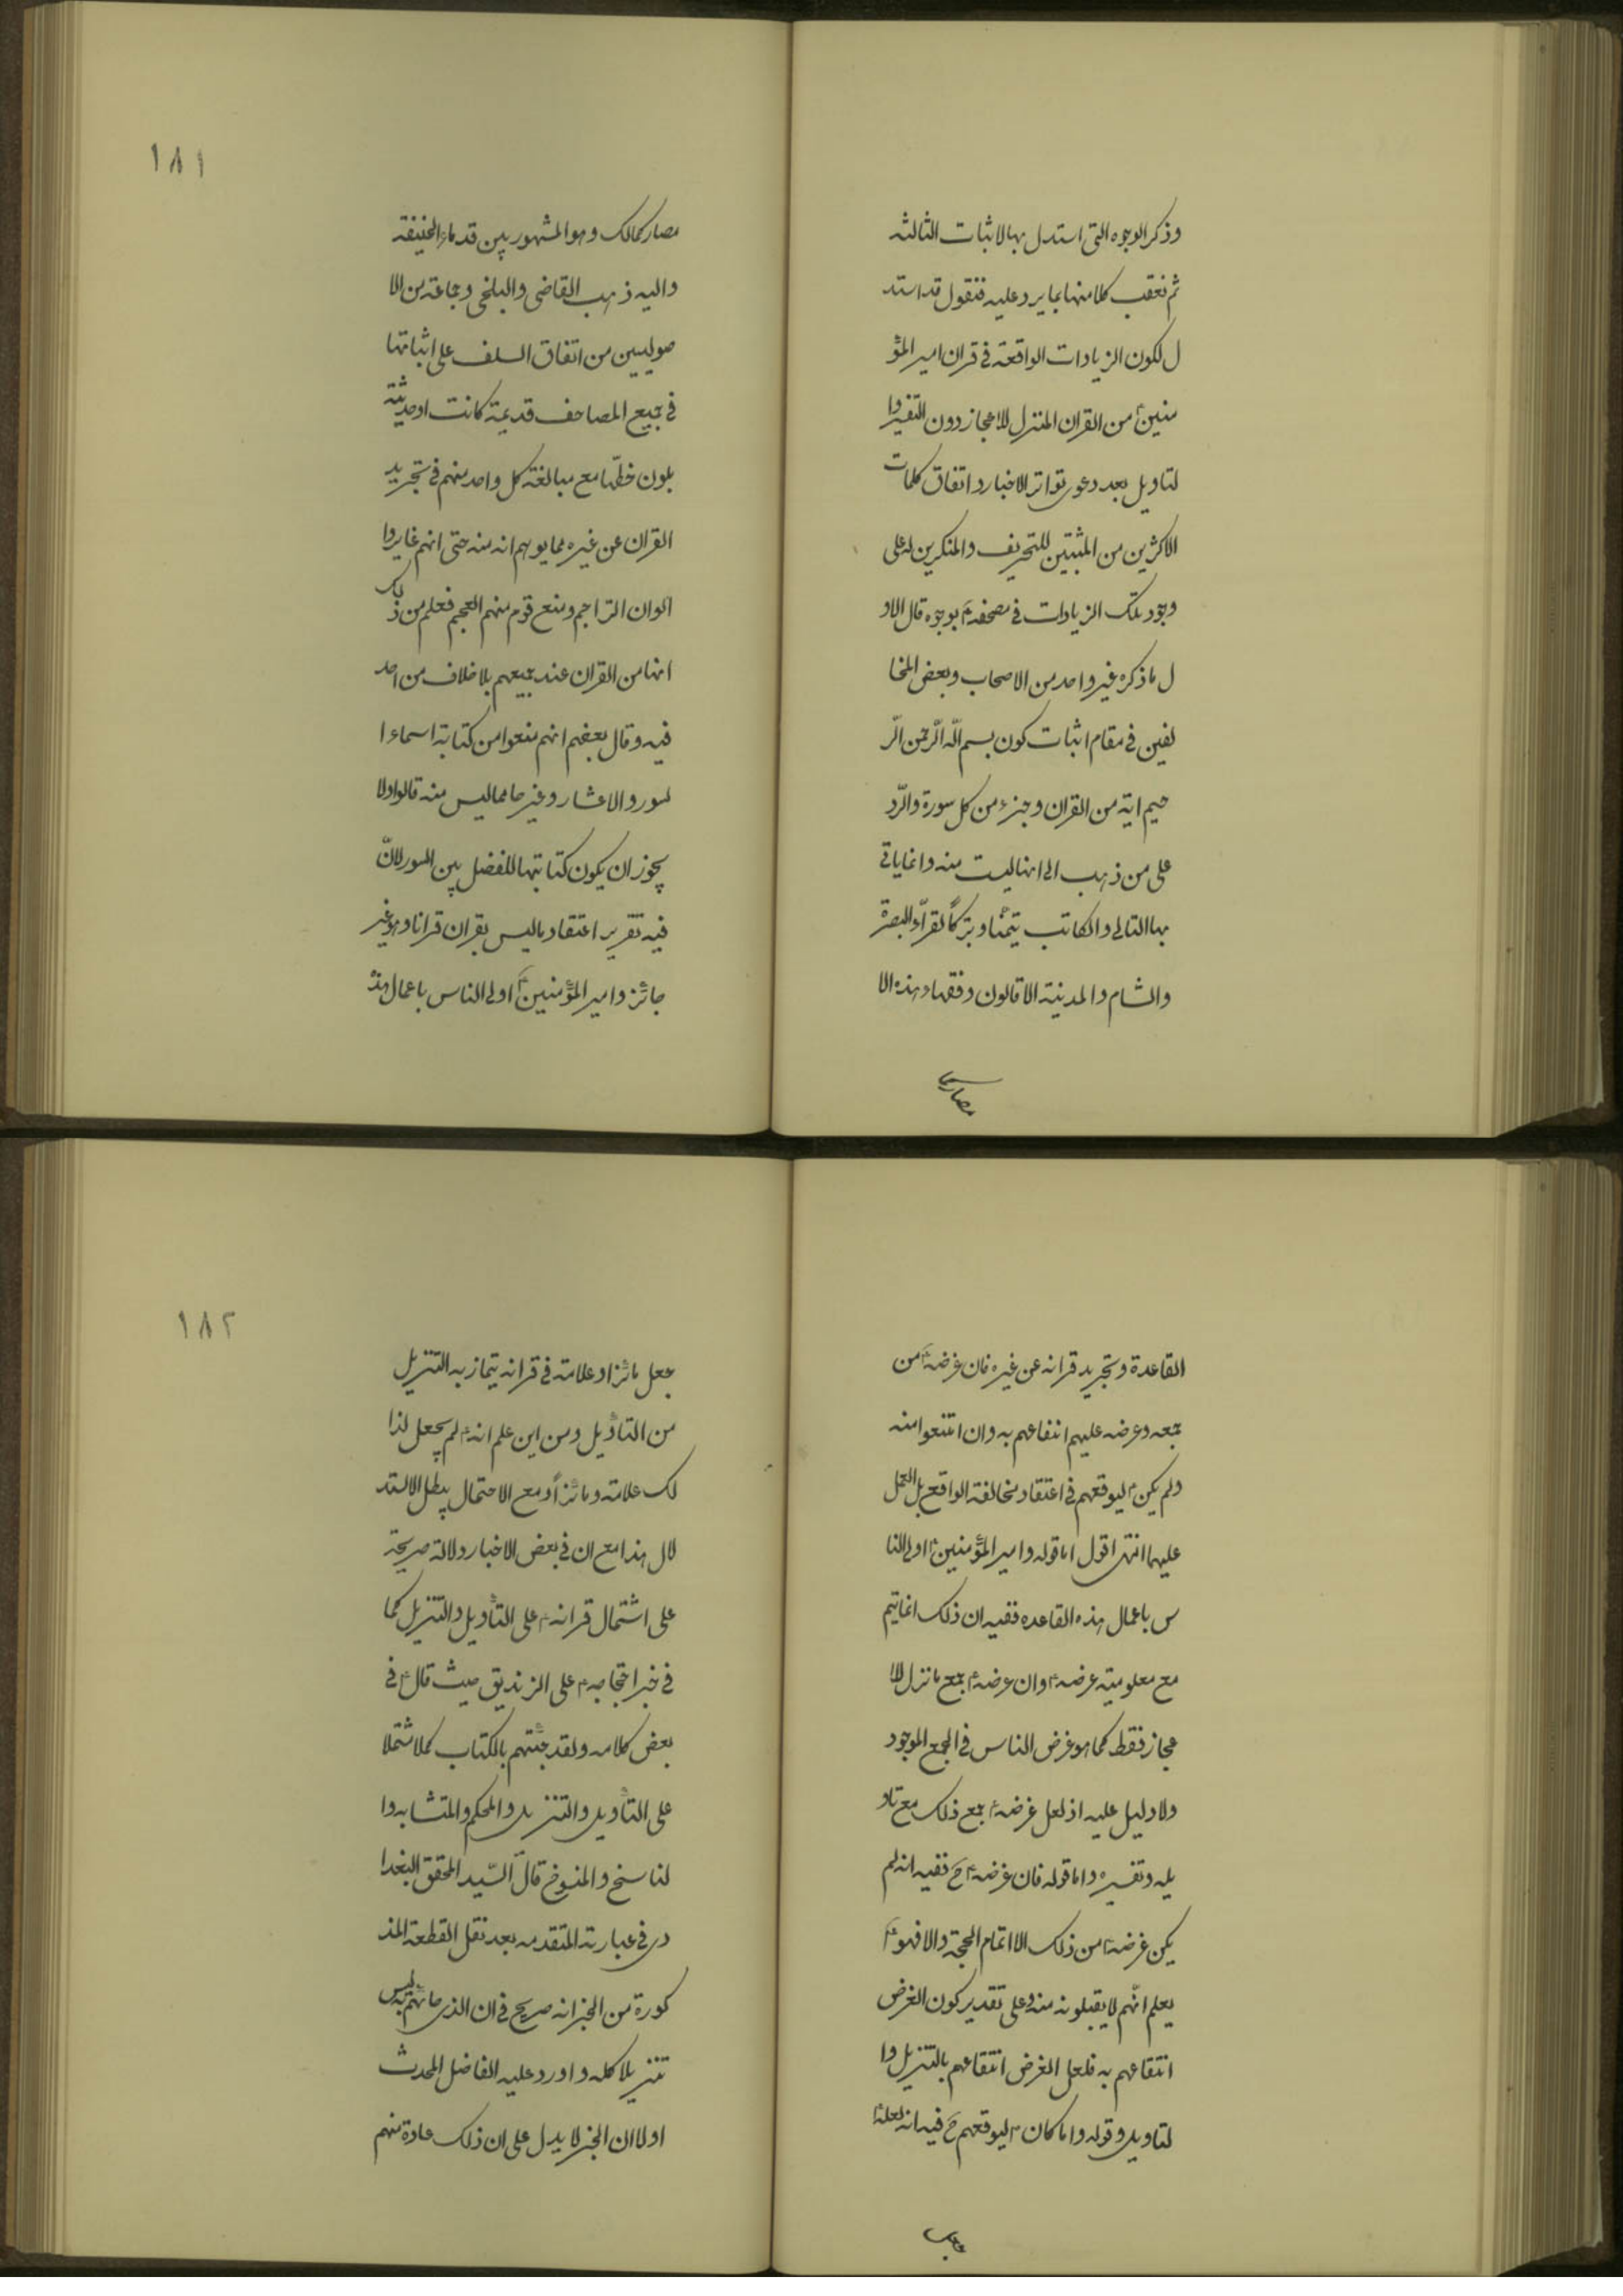 وذكر الوجوه التى استدل بها لاثبات الثالثه
ثم نعقب كلا منها بما يرد عليه فنقول قد استد
ل لكون الزيادات الواقعة فى قران امير المؤ
منينؑ من القران المنزل للاعجاز دون التفسير وا
لتاويل بعد دعوى تواتر الاخبار واتفاق كلمات
الاكثرين من المثبتين للتحريف والمنكرين له على
وجود تلك الزيادات فى مصحفهؑ بوجوه قال الاو
ل ما ذكره غير واحد من الاصحاب وبعض المخا
لفين فى مقام اثبات كون بسم الله الرّحمن الرّ
حيم اية من القران وجزء من كل سورة والرّد
على من ذهب الى انها ليست منه وانما ياتى
بها التالى والكاتب تيمّنا وتبركاً لقراّء البصرة
والشام والمدينة الا قالون وفقهاء هذه الا
مصار كما
١٨١
مصار كمالك وهو المشهور بين قدماء الحنفية
واليه ذهب القاضى والبلخى وجماعة من الا
صوليين من اتفاق السلف على اثباتها
فى جميع المصاحف قديمة كانت او حديثة
بلون خطّها مع مبالغة كل واحد منهم فى تجريد
القران عن غيره مما يوهم انه منه حتى انهم غايروا
الوان التراجم ومنع قوم منهم العجم فعلم من ذلك
انها من القران عند جميعهم بلا خلاف من احد
فيه وقال بعضهم انهم منعوا من كتابة اسماء ا
لسور والاعشار وغيرها مما ليس منه قالوا ولا
يجوز ان يكون كتابتها للفصل بين السور لانّ
فيه تقرير اعتقاد ما ليس بقران قرانا وهو غير
جائز وامير المؤمنينؑ اولى الناس باعمال هذه
القاعدة وتجريد قرانه عن غيره فان غرضهؑ من
جمعه وعرضه عليهم انتفاعهم به وان امتنعوا منه
ولم يكنؑ ليوقعهم فى اعتقاد مخالفة الواقع بل العمل
عليها انتهى اقول اما قوله وامير المؤمنينؑ اولى النا
س باعمال هذه القاعده ففيه ان ذلك انما يتم
مع معلومية غرضهؑ وان غرضهؑ جمع ما نزل للا
عجاز فقط كما هو غرض الناس فى الجمع الموجود
ولا دليل عليه اذ لعل غرضهؑ جمع ذلك مع تاو
يله وتفسيره واما قوله فان غرضهؑ ح ففيه انه لم
يكن غرضهؑ من ذلك الا اتمام الحجة والا فهوؑ
يعلم انّهم لا يقبلونه منه وعلى تقدير كون الغرض
انتفاعهم به فلعل الغرض انتفاعهم بالتنزيل وا
لتاويل وقوله واما كانؑ ليوقعهم ح فيه انه لعلهؑ
جعل
١٨٢
جعل مائزا وعلامة فى قرانه يتمازبه التنزيل
من التاؤيل ومن اين علم انهؑ لم يجعل لذا
لك علامة ومائزاً ومع الاحتمال يبطل الاستد
لال هذا مع ان فى بعض الاخبار دلالة صريحة
على اشتمال قرانهؑ على التأويل والتنزيل كما
فى خبر احتجاجهؑ على الزنديق حيث قالؑ فى
بعض كلامه ولقد جئتهم بالكتاب كملا مشتملا
على التأويل والتنزيل والمحكم والمتشابه وا
لناسخ والمنسوخ قال السّيد المحقق البغدا
دى فى عبارته المتقدمه بعد نقل القطعة المذ
كورة من الخبر انه صريح فى ان الذى جائهم به ليس
تنزيلا كله واورد عليه الفاضل المحدث
اولا ان الخبر لا يدل على ان ذلك عادة منهم